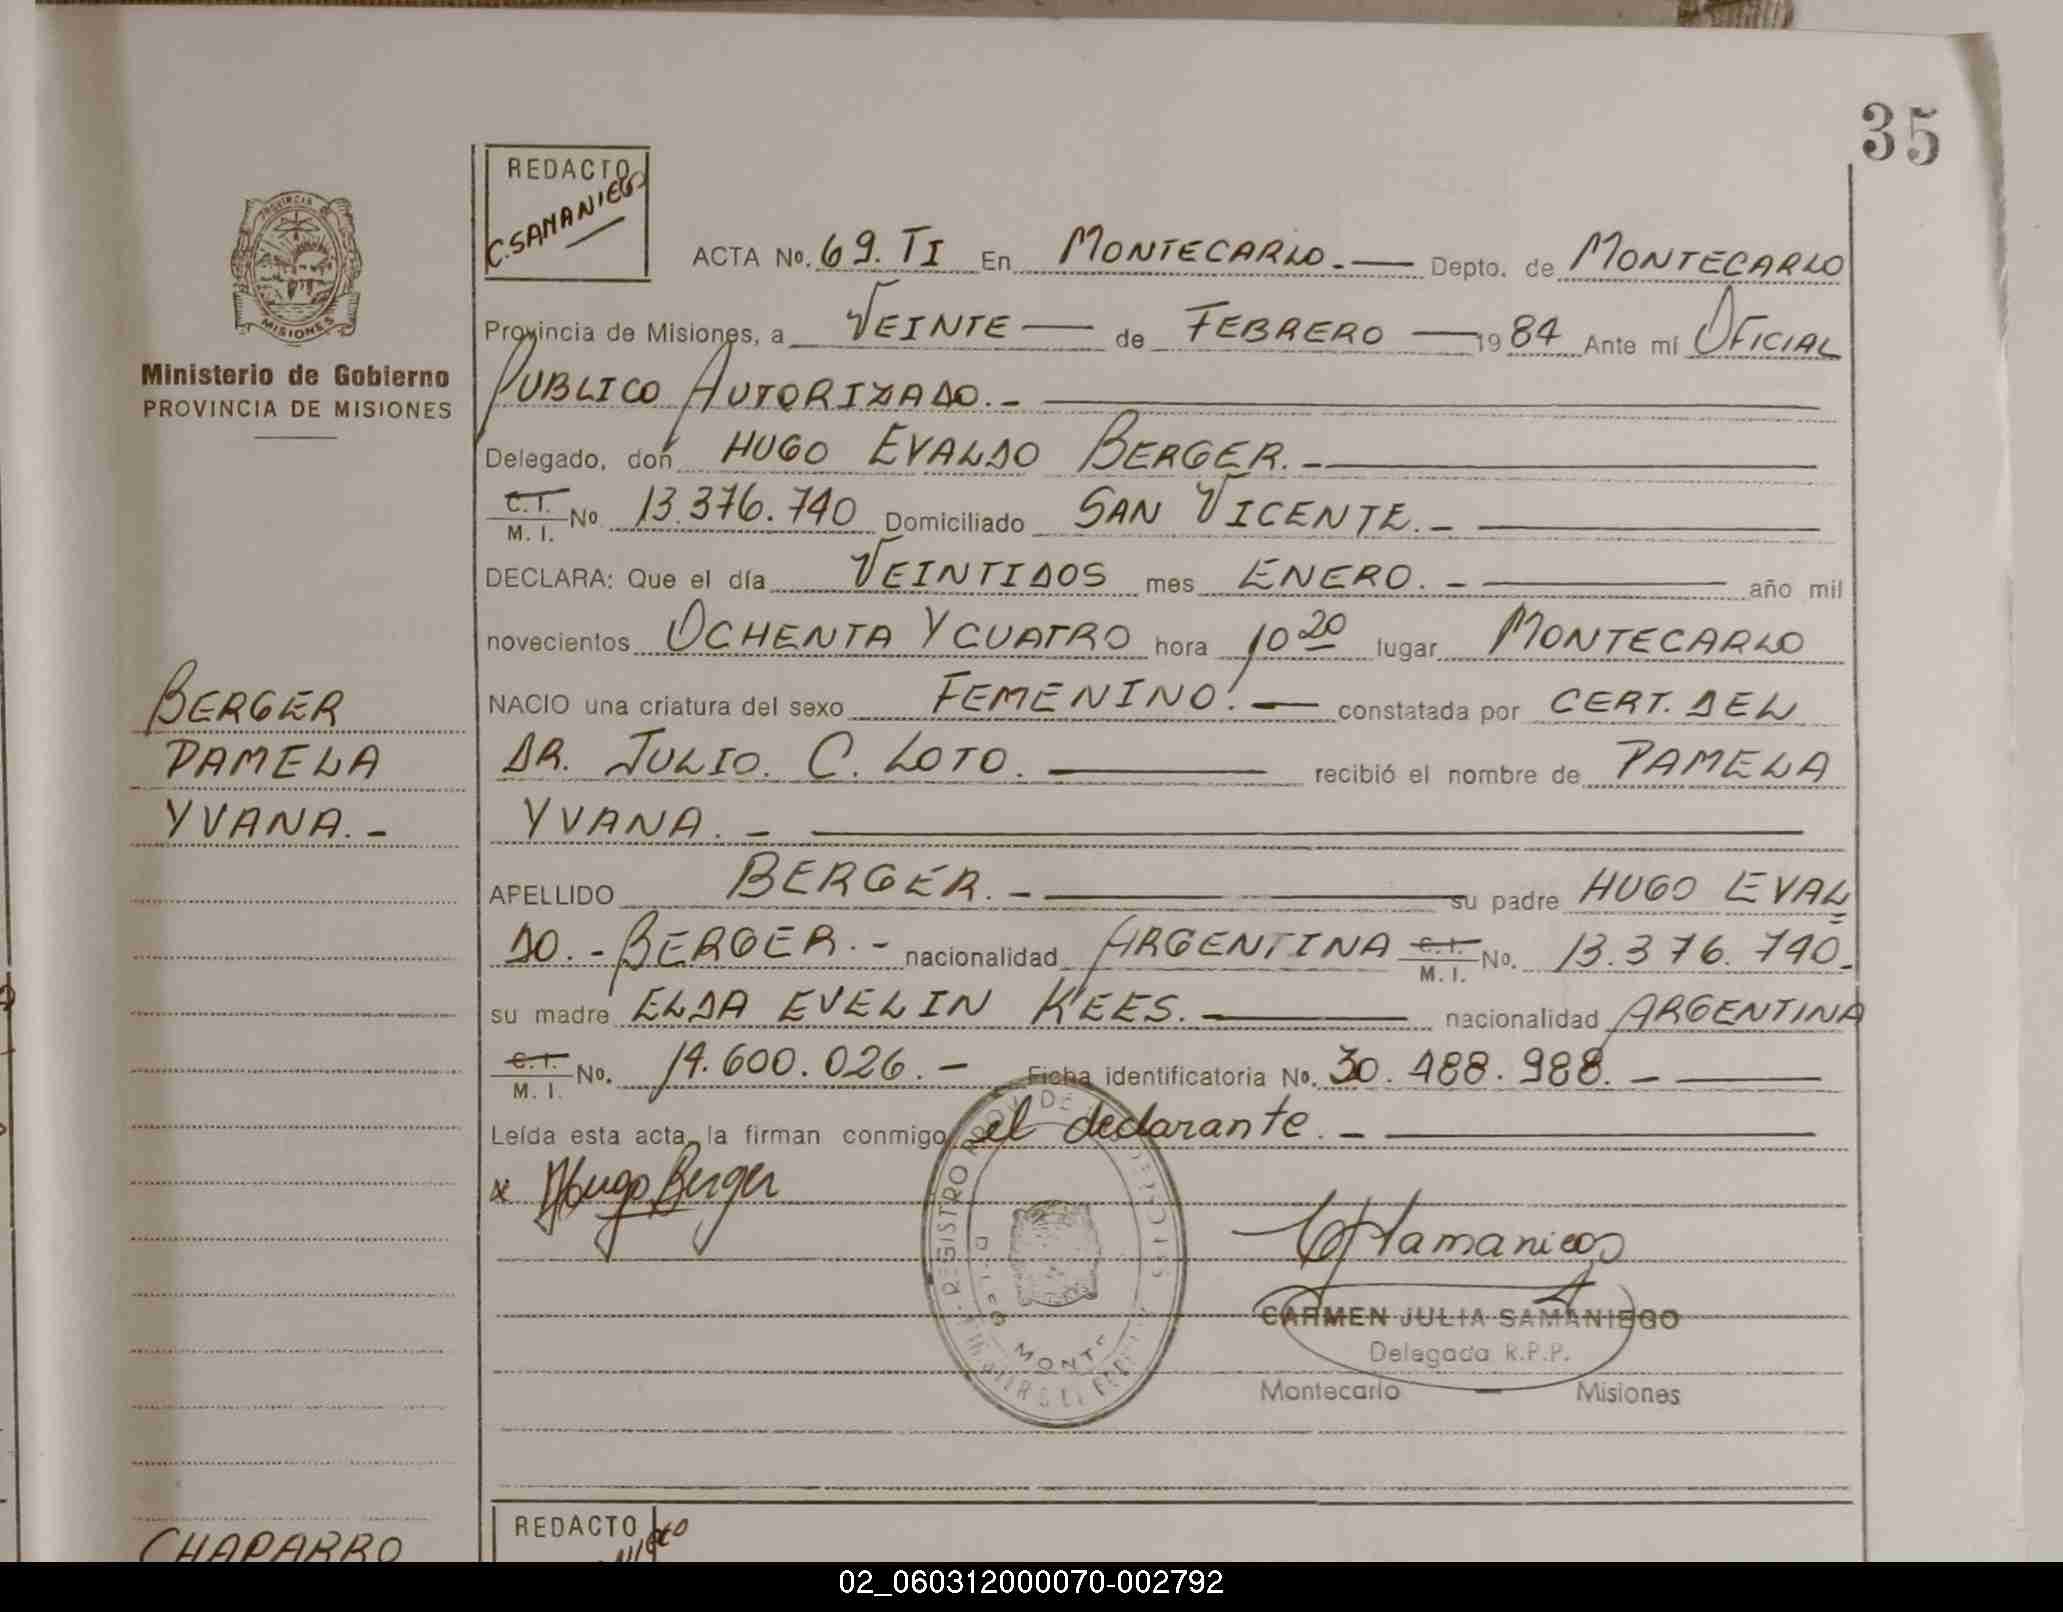 35
REDACTO
C. SAMANIEGO
PROVINCIA DE
MISIONES
Ministerio de Gobierno
PROVINCIA DE MISIONES
ACTA No. 69. TI En MONTECARLO.- Depto. de MONTECARLO
Provincia de Misiones, a VEINTE de FEBRERO 1984 Ante mí OFICIAL
PUBLICO AUTORIZADO.-
Delegado, don HUGO EVALDO BERGER.-
C.I. / M. I. No 13.376.740 Domiciliado SAN VICENTE.-
DECLARA: Que el día VEINTIDOS mes ENERO.- año mil
novecientos OCHENTA Y CUATRO hora 10 20 lugar MONTECARLO
NACIO una criatura del sexo FEMENINO.- constatada por CERT. DEL
DR. JULIO. C. LOTO. recibió el nombre de PAMELA
YVANA.-
APELLIDO BERGER.- su padre HUGO EVAL
DO.- BERGER.- nacionalidad ARGENTINA C.I. / M. I. No. 13.376.740.
su madre ELDA EVELIN KEES. nacionalidad ARGENTINA
C.I. / M. I. No. 14.600.026.- Ficha identificatoria No. 30.488.988.-
Leída esta acta, la firman conmigo el declarante.-
BERGER
PAMELA
YVANA.-
x Hugo Berger
CJSamaniego
REGISTRO PROV. DE
MONTE
CARMEN JULIA SAMANIEGO
Delegada R.P.P.
Montecarlo - Misiones
CHAPARRO
REDACTO
02_060312000070-002792